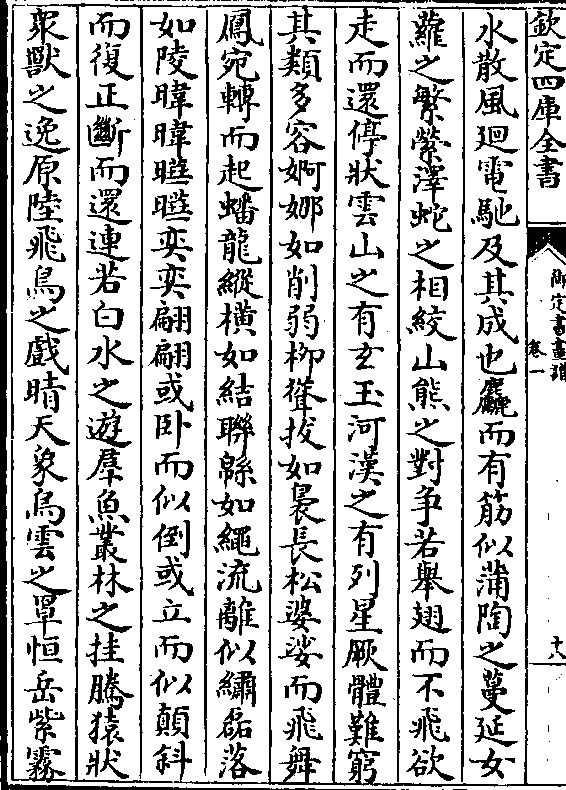 欽定四庫全書
御定書畫譜
卷一
十八
水散風迴電馳及其成也麤而有筋似蒲陶之蔓延女
蘿之繁縈澤蛇之相絞山熊之對争若舉翅而不飛欲
走而還停狀雲山之有玄玉河漢之有列星厥體難窮
其類多容婀娜如削弱栁聳拔如裊長松婆娑而飛舞
鳳宛轉而起蟠龍縱横如結聯緜如繩流離似繡磊落
如陵暐暐曄曄奕奕翩翩或卧而似倒或立而似顛斜
而復正斷而還連若白水之遊羣魚叢林之挂騰猿狀
衆獸之逸原陸飛鳥之戲晴天象烏雲之罩恒岳紫霧